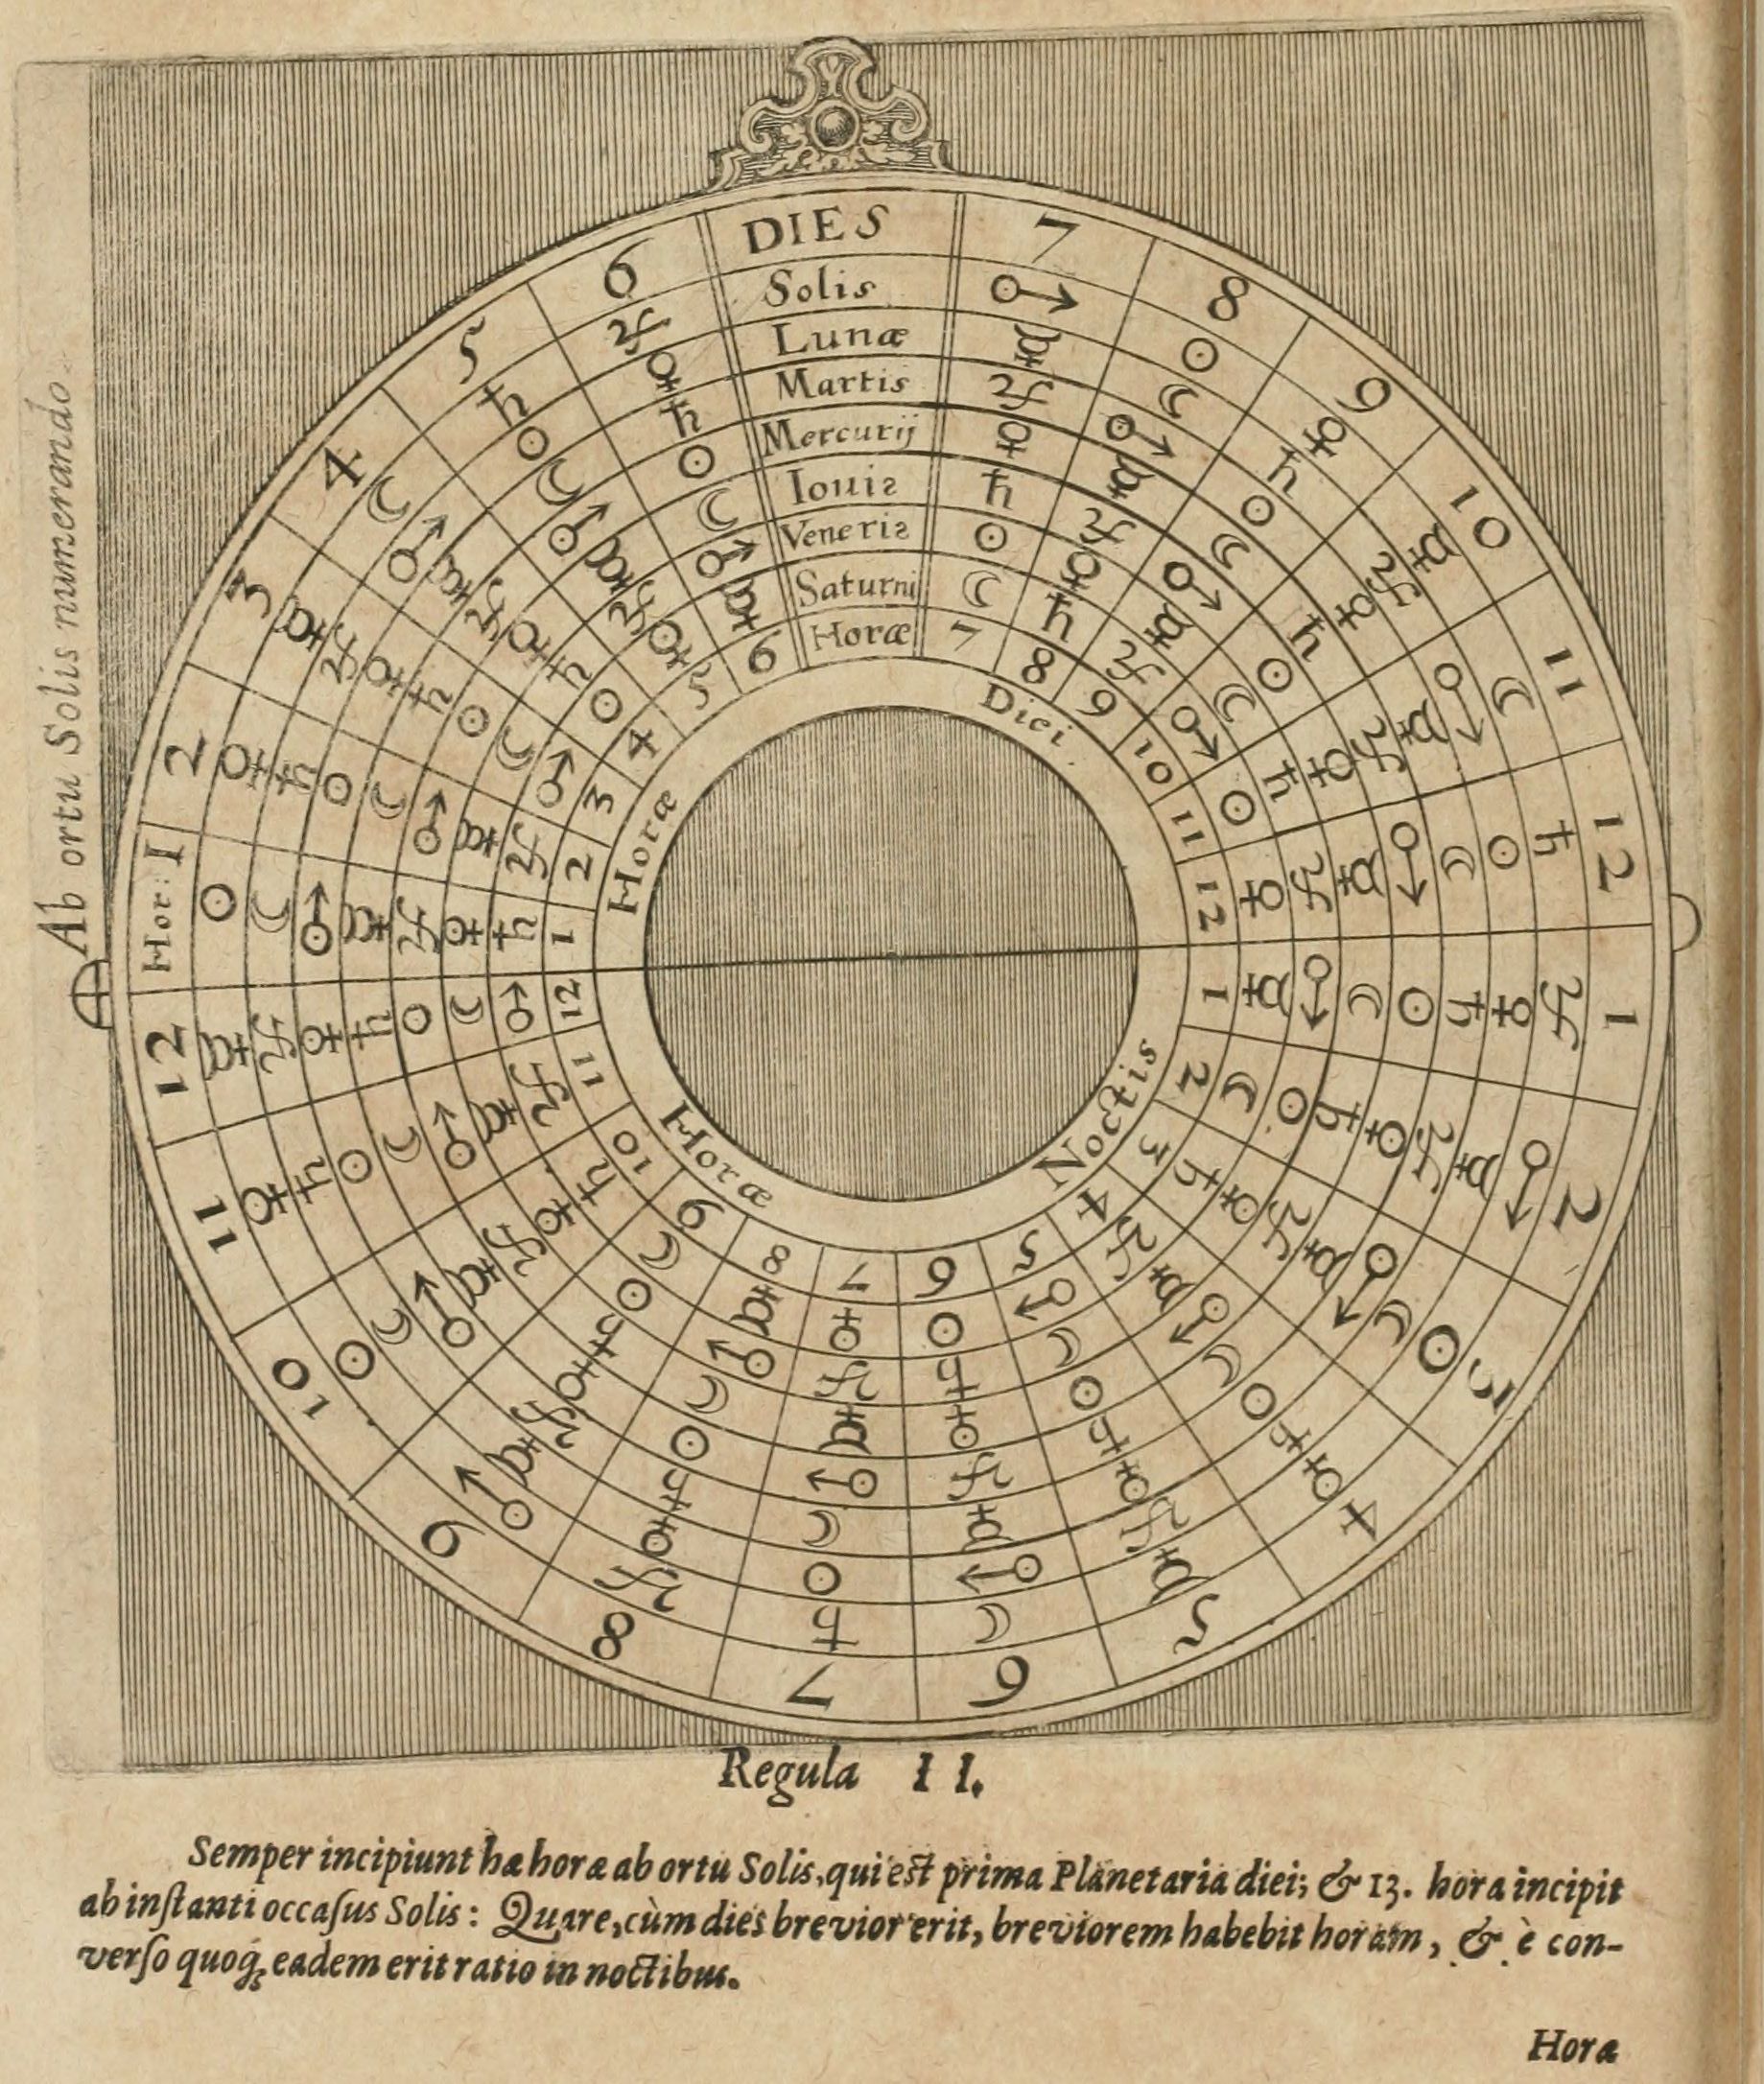 Ab ortu Solis numerando.
DIES
Solis
Lunæ
Martis
Mercurij
Iouis
Veneris
Saturni
Horæ
Hor: 1 2 3 4 5 6 7 8 9 10 11 12
1 2 3 4 5 6 7 8 9 10 11 12
☉ ♀ ☿ ☾ ♄ ♃ ♂ ☉ ♀ ☿ ☾ ♄
♃ ♂ ☉ ♀ ☿ ☾ ♄ ♃ ♂ ☉ ♀ ☿
☾ ♄ ♃ ♂ ☉ ♀ ☿ ☾ ♄ ♃ ♂ ☉
♀ ☿ ☾ ♄ ♃ ♂ ☉ ♀ ☿ ☾ ♄ ♃
♂ ☉ ♀ ☿ ☾ ♄ ♃ ♂ ☉ ♀ ☿ ☾
♄ ♃ ♂ ☉ ♀ ☿ ☾ ♄ ♃ ♂ ☉ ♀
☿ ☾ ♄ ♃ ♂ ☉ ♀ ☿ ☾ ♄ ♃ ♂
☉ ♀ ☿ ☾ ♄ ♃ ♂ ☉ ♀ ☿ ☾ ♄
♃ ♂ ☉ ♀ ☿ ☾ ♄ ♃ ♂ ☉ ♀ ☿
☾ ♄ ♃ ♂ ☉ ♀ ☿ ☾ ♄ ♃ ♂ ☉
♀ ☿ ☾ ♄ ♃ ♂ ☉ ♀ ☿ ☾ ♄ ♃
♂ ☉ ♀ ☿ ☾ ♄ ♃ ♂ ☉ ♀ ☿ ☾
♄ ♃ ♂ ☉ ♀ ☿ ☾ ♄ ♃ ♂ ☉ ♀
☿ ☾ ♄ ♃ ♂ ☉ ♀ ☿ ☾ ♄ ♃ ♂
1 2 3 4 5 6 7 8 9 10 11 12
1 2 3 4 5 6 7 8 9 10 11 12
Horæ Diei
Horæ Noctis
Regula II.
Semper incipiunt hæ horæ ab ortu Solis, qui est prima Planetaria diei; & 13. hora incipit
ab instanti occasus Solis: Quare, cùm dies brevior erit, breviorem habebit horam, & è con-
verso quoq; eadem erit ratio in noctibus.
Horæ